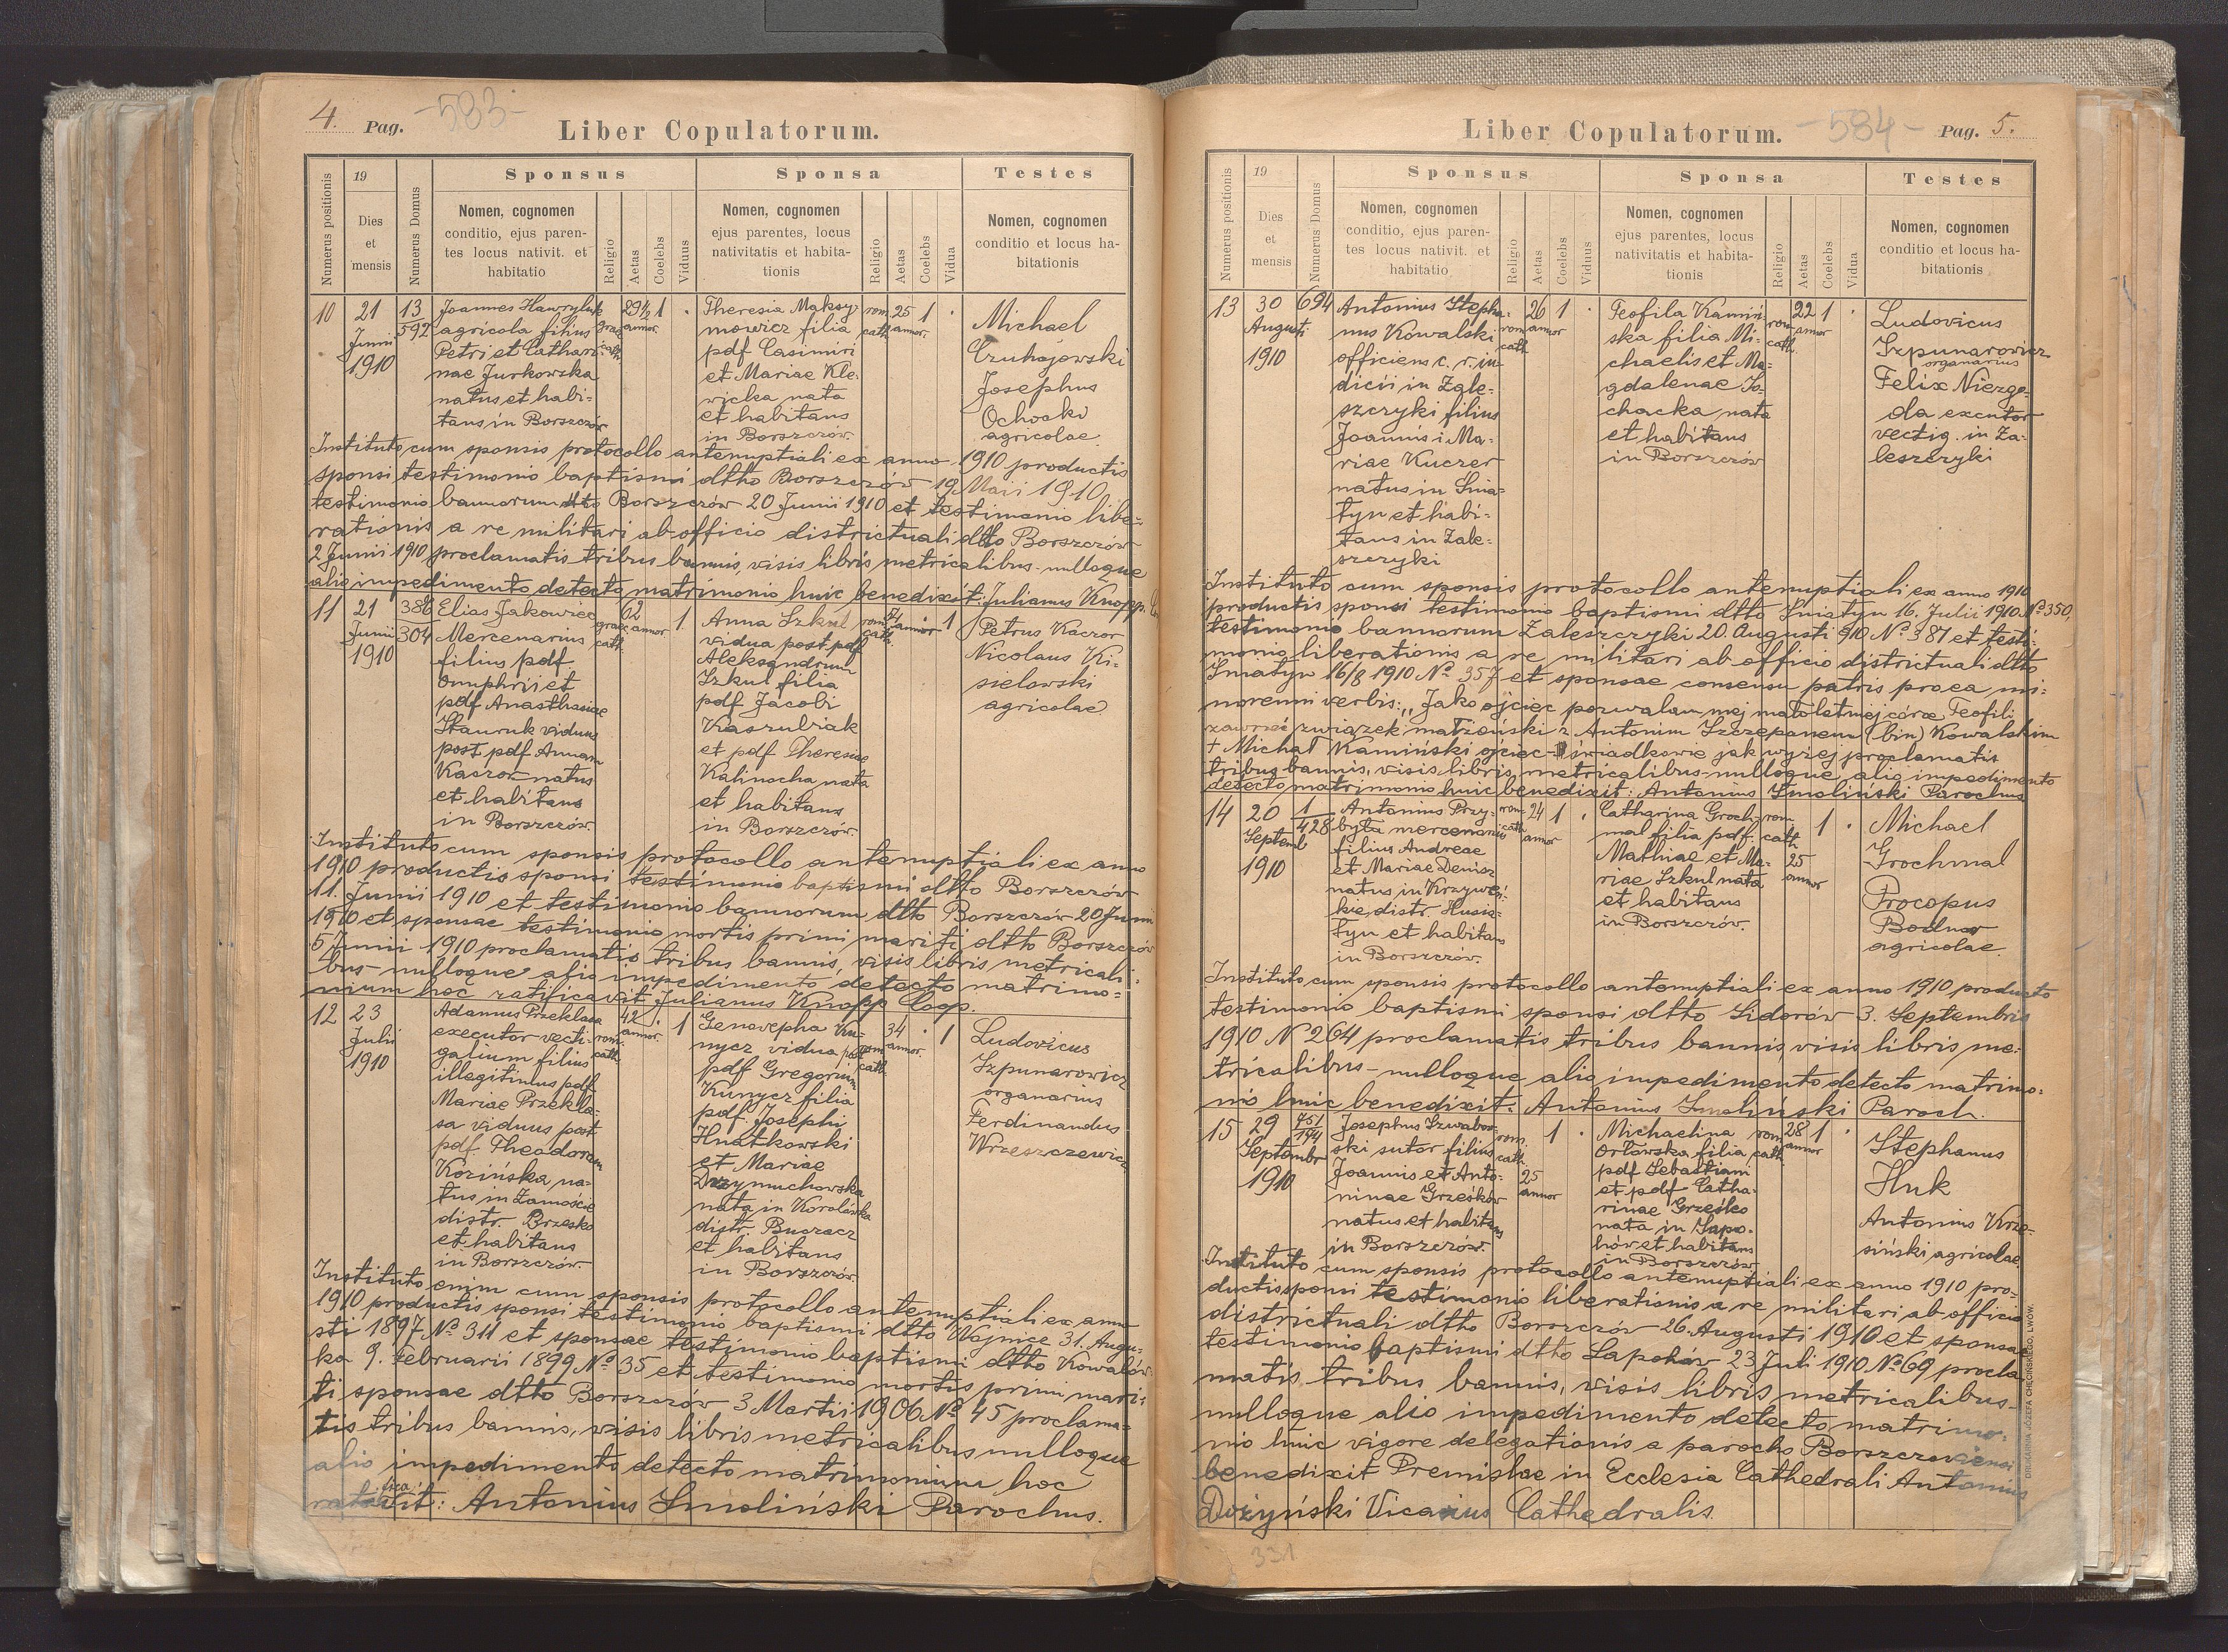 4. Pag. -583-
Liber Copulatorum.
Numerus positionis
19
Dies
et
mensis
Numerus Domus
Sponsus
Nomen, cognomen
conditio, ejus paren-
tes locus nativit. et
habitatio
Religio
Aetas
Coelebs
Viduus
Sponsa
Nomen, cognomen
ejus parentes, locus
nativitatis et habita-
tionis
Religio
Aetas
Coelebs
Vidua
Testes
Nomen, cognomen
conditio et locus ha-
bitationis
10
21
Junii
1910
13
592
Joannes Hawryluk
agricola filius
Petri et Cathari-
nae Jurkowska
natus et habi-
tans in Borszczów
graec.
cath.
29 1/2
annor.
1
Theresia Maksy-
mowicz filia
pdf Casimiri
et Mariae Kle-
wicka nata
et habitans
in Borszczów.
rom.
cath.
25
annor.
1
Michael
Czuhajowski
Josephus
Ochocki
agricolae.
Instituto cum sponsis protocollo antenuptiali ex anno 1910 productis
sponsi testimonio baptismi dtto Borszczów 19 Maii 1910,
testimonio bannorum dtto Borszczów 20 Junii 1910 et testimonio libe-
rationis a re militari ab officio districtuali dtto Borszczów
2 Junii 1910 proclamatis tribus bannis, visis libris metricalibus - nulloque
alio impedimento detecto matrimonio huic benedixit: Julianus Knopp.
11
21
Junii
1910
386
304
Elias Jakowiec
Mercenarius
filius pdf.
Onuphrii et
pdf Anasthasiae
Stauruk viduus
post pdf Annam
Kaczor natus
et habitans
in Borszczów.
graec.
cath.
62
annor.
1
Anna Szkul
vidua post pdf
Aleksandrum
Szkul filia
pdf Jacobi
Kaszubiak
et pdf Theresiae
Kalinocha nata
et habitans
in Borszczów.
rom.
cath.
annor
1
Petrus Kaczor
Nicolaus Ki-
sielowski
agricolae.
Instituto cum sponsis protocollo antenuptiali ex anno
1910 productis sponsi testimonio baptismi dtto Borszczów
11. Junii 1910 et testimonio bannorum dtto Borszczów 20 Junii
1910 et sponsae testimonio mortis primi mariti dtto Borszczów
5 Junii 1910 proclamatis tribus bannis, visis libris metricali-
bus - nulloque alio impedimento detecto matrimo-
nium hoc ratificavit Julianus Knopp Coop.
12
23
Julii
1910
Adamus Przeklasa
executor vecti-
galium filius
illegitimus pdf.
Mariae Przekla-
sa viduus post
pdf. Theodoram
Kozińska na-
tus in Zamoście
distr. Brzesko
et habitans
in Borszczów.
42
annor.
rom.
cath.
1
Genovepha Ku-
nycz vidua post
pdf Gregorium
Kunycz filia
pdf. Josephi
Hnatkowski
et Mariae
Drzymuchowska
nata in Korolówka
distr. Buczacz
et habitans
in Borszczów
34
annor.
rom.
cath.
1
Ludovicus
Szpunarowicz
organarius
Ferdinandus
Wrzeszczewicz
Instituto enim cum sponsis protocollo antenuptiali ex anno
1910 productis sponsi testimonio baptismi dtto Wojnicz 31. Augu-
sti 1897 No. 311 et sponsae testimonio baptismi dtto Kowalów-
ka 9. Februarii 1899 No 35 et testimonio mortis primi mari-
ti sponsae dtto Borszczów 3 Martii 1906 No 45 proclama-
tis tribus bannis, visis libris metricalibus nulloque
alio impedimento detecto matrimonium hoc
ratificavit: Antonius Smoliński Parochus.
Liber Copulatorum.
-584- Pag. 5.
Numerus positionis
19
Dies
et
mensis
Numerus Domus
Sponsus
Nomen, cognomen
conditio, ejus paren-
tes locus nativit. et
habitatio
Religio
Aetas
Coelebs
Viduus
Sponsa
Nomen, cognomen
ejus parentes, locus
nativitatis et habita-
tionis
Religio
Aetas
Coelebs
Vidua
Testes
Nomen, cognomen
conditio et locus ha-
bitationis
13
30
Augusti
1910
694
Antonius Stepha-
nus Kowalski
officiens c. r. iu-
dicii in Zale-
szczyki filius
Joannis i Ma-
riae Kuczer
natus in Snia-
tyn et habi-
tans in Zale-
szczyki
rom
cath
26
annor
1
Teofila Kamiń-
ska filia Mi-
chaelis et Ma-
gdalenae So-
chacka nata
et habitans
in Borszczów
rom
cath
22
annor
1
Ludovicus
Szpunarowicz
organarius
Felix Niezgo-
da executor
vectig. in Za-
leszczyki
Instituto cum sponsis protocollo antenuptiali ex anno 1910
productis sponsi testimonio baptismi dtto Sniatyn 16. Julii 1910 No 350,
testimonio bannorum Zaleszczyki 20. Augusti 910 No 387 et testi-
monio liberationis a re militari ab officio districtuali dtto
Sniatyn 16/8 1910 No 357 et sponsae consensu patris pro ea mi-
norenni verbis: „Jako ojciec pozwalam mej małoletniej córce Teofili
zawrzeć związek małżeński z Antonim Szczepanem (bin) Kowalskim
+ Michał Kamiński ojciec - świadkowie jak wyżej proclamatis
tribus bannis, visis libris metricalibus - nulloque alio impedimento
detecto matrimonio huic benedixit: Antonius Smoliński Parochus
14
20
Septemb
1910
1
428
Antonius Przy-
była mercenarius
filius Andreae
et Mariae Denisz
natus in Krzyweń-
kie, distr. Husia-
tyn et habitans
in Borszczów.
rom.
cath
24
annor
1
Catharina Groch-
mal filia pdf.
Mathiae et Ma-
riae Szkul nata
et habitans
in Borszczów.
rom
cath
25
annor
1
Michael
Grochmal
Procopus
Bodnar
agricolae.
Instituto cum sponsis protocollo antenuptiali ex anno 1910 producto
testimonio baptismi sponsi dtto Sidorów 3. Septembris
1910 No 264 proclamatis tribus bannis visis libris me-
tricalibus - nulloque alio impedimento detecto matrimo-
nio huic benedixit: Antonius Smoliński Paroch.
15
29
Septembr
1910
751
194
Josephus Szwabow-
ski sutor filius
Joannis et Anto-
ninae Grześków
natus et habitans
in Borszczów.
rom.
cath.
25
annor
1
Michaelina
Orłowska filia
pdf Sebastiani
et pdf Catha-
rinae Grześko
nata in Sapo-
hów et habitans
in Borszczów
rom
cath
28
annor
1
Stephanus
Huk
Antonius Krze-
siński agricolae.
Instituto cum sponsis protocollo antenuptiali ex anno 1910 pro-
ductis sponsi testimonio liberationis a re militari ab officio
districtuali dtto Borszczów 26. Augusti 1910 et sponsae
testimonio baptismi dtto Sapohów 23 Juli 1910 No 69 procla-
matis tribus bannis, visis libris metricalibus -
nulloque alio impedimento detecto matrimo-
nio huic vigore delegationis a parocho Borszczoviensi
benedixit Premisliae in Ecclesia Cathedrali Antonius
Dożyński Vicarius Cathedralis.
331
DRUKARNIA JÓZEFA CHĘCIŃSKIEGO, LWÓW.